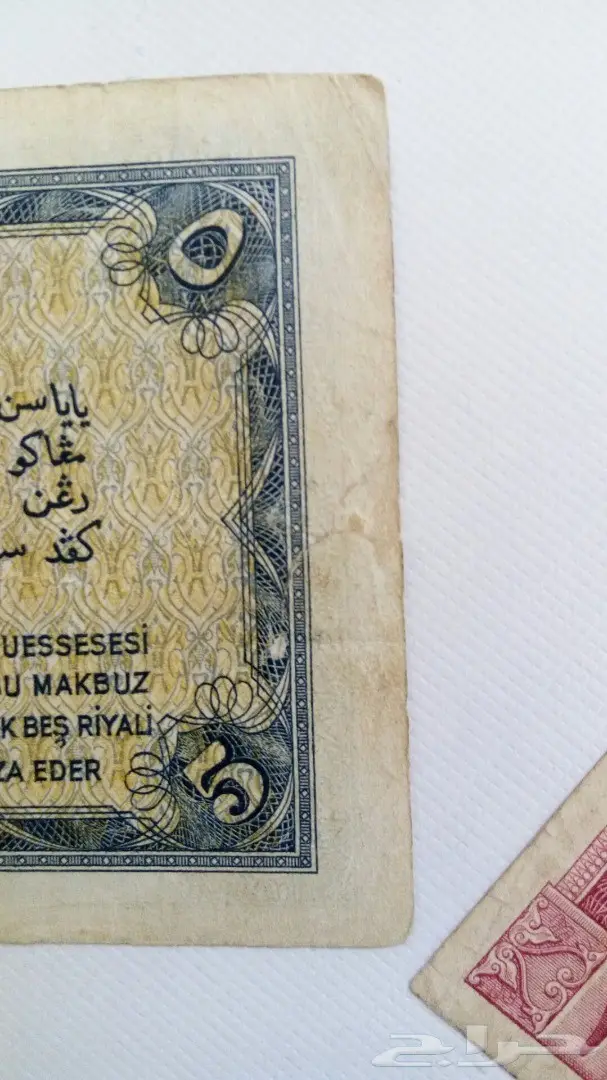 ٥
ياياسن
مڠاكو
رڠن
كڤد س
UESSESESİ
BU MAKBUZ
K BEŞ RİYALİ
ZA EDER
5
حراج